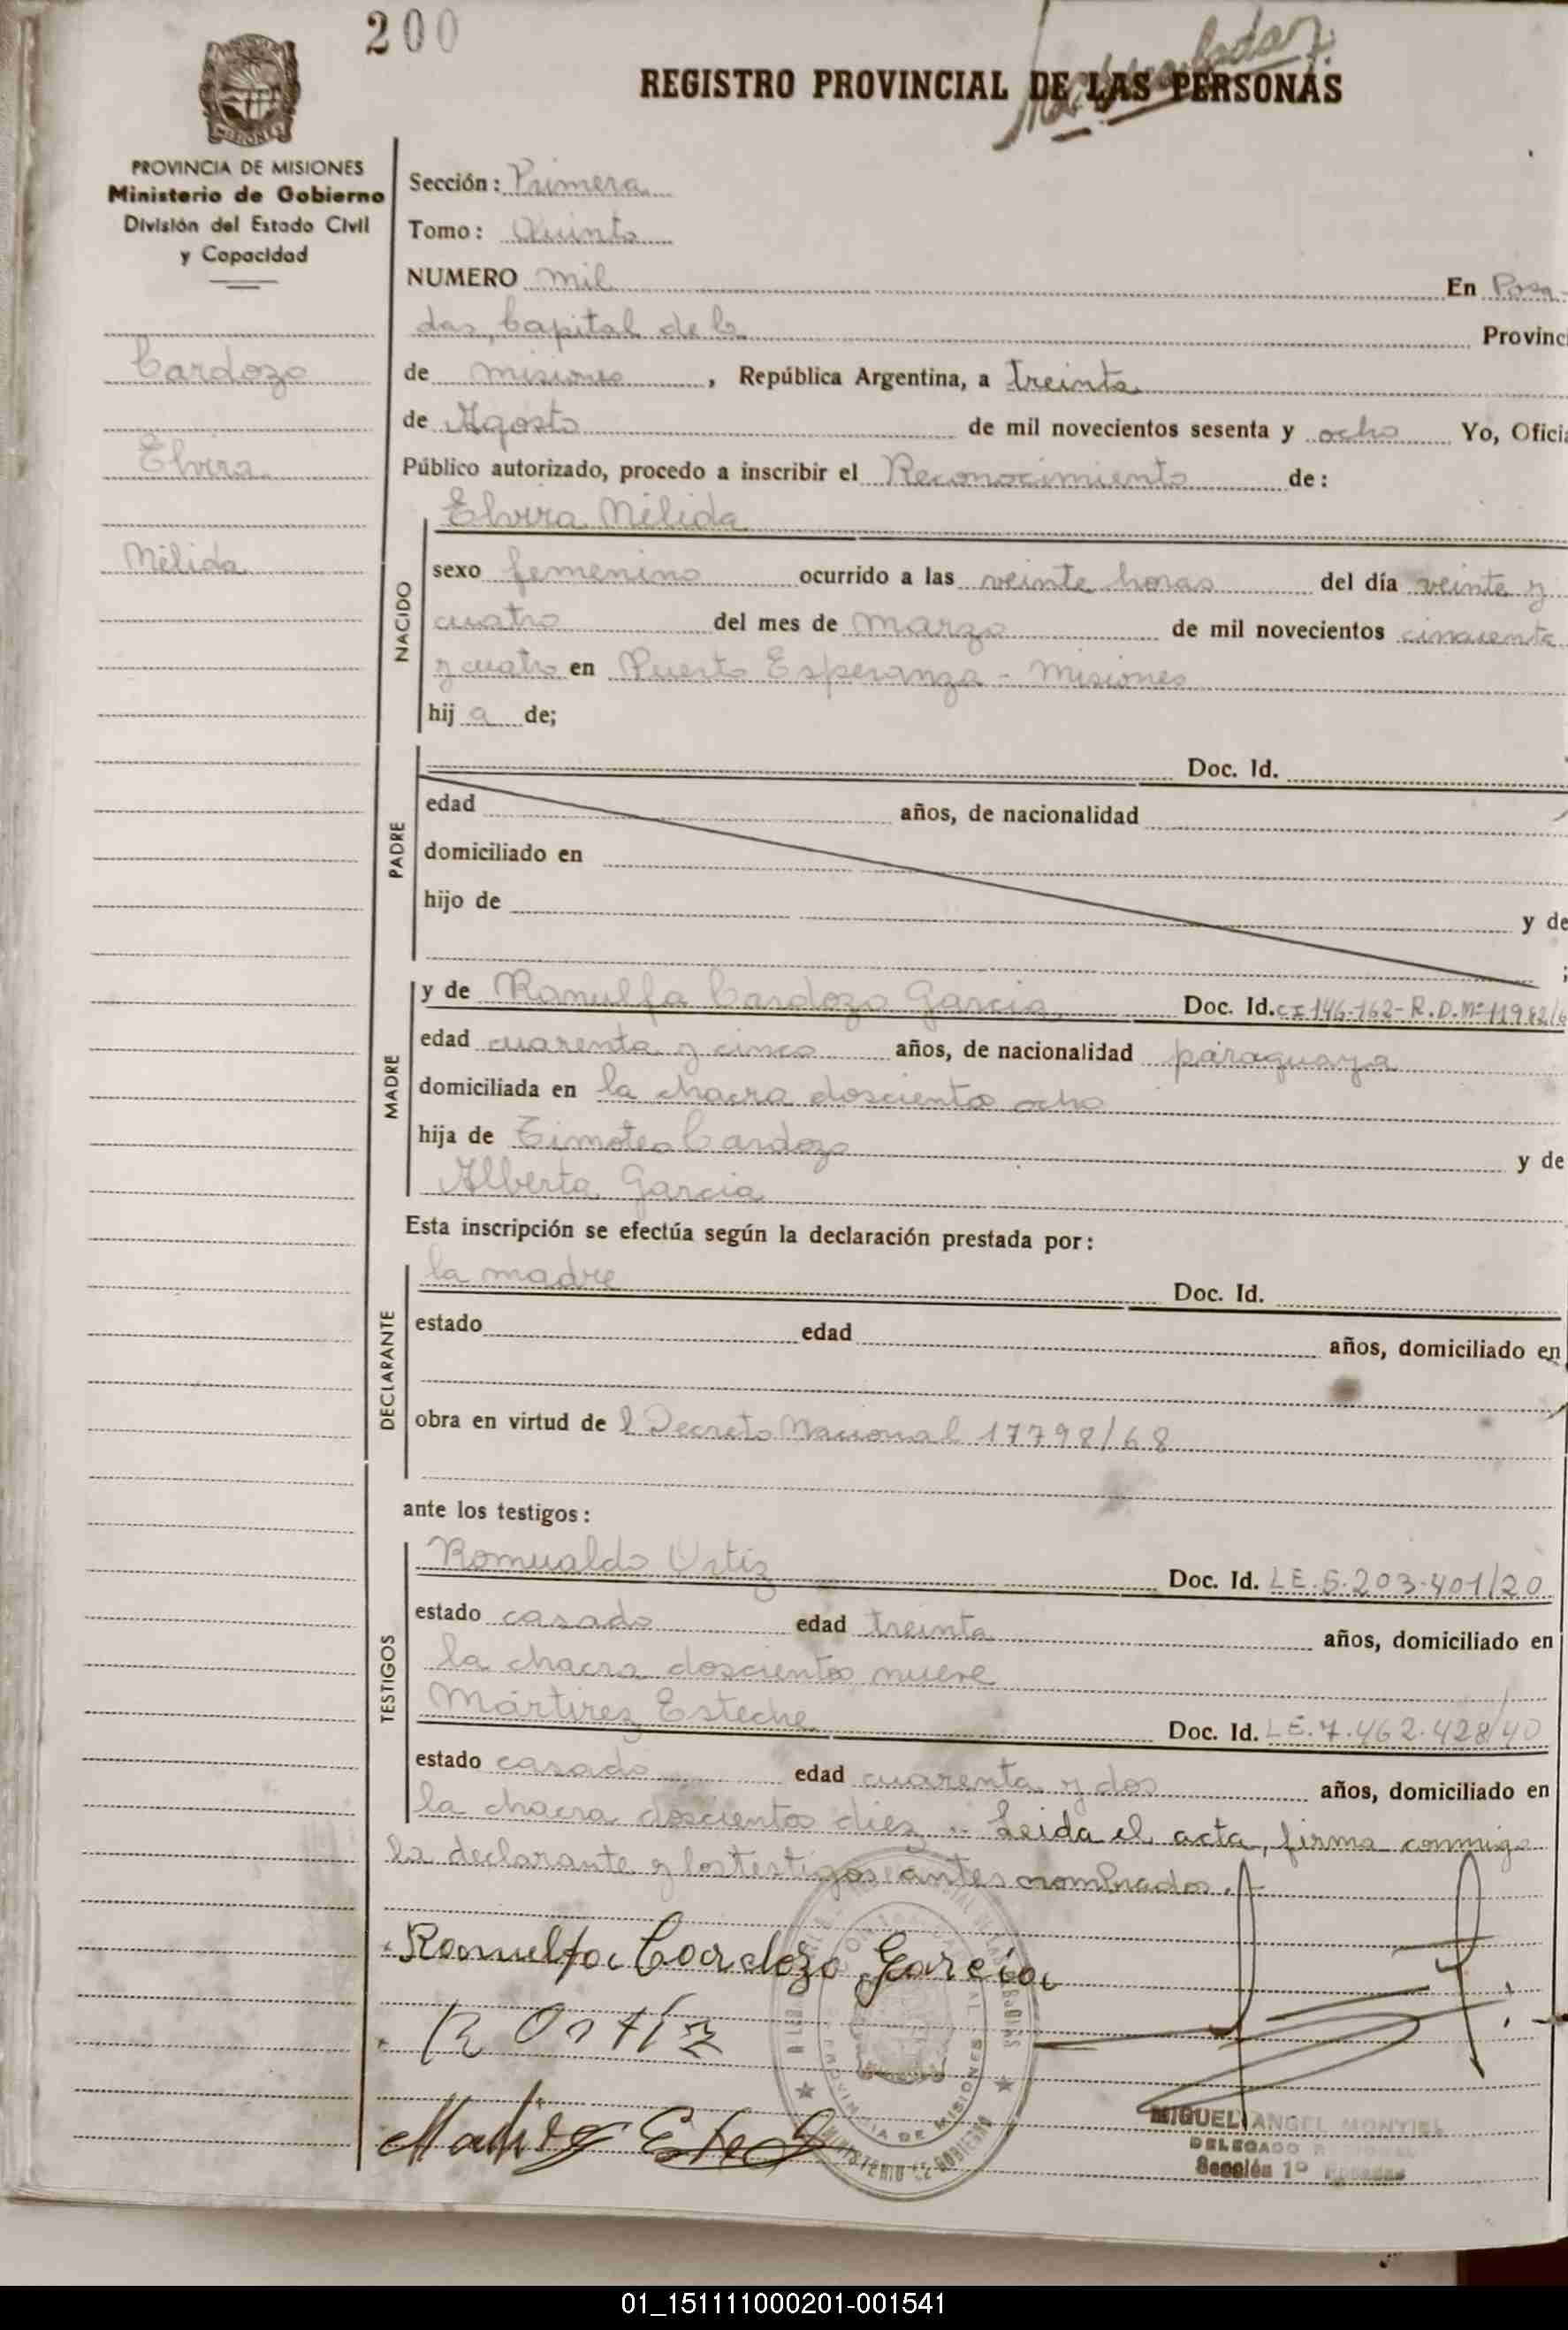 200
REGISTRO PROVINCIAL DE LAS PERSONAS
PROVINCIA DE MISIONES
Ministerio de Gobierno
División del Estado Civil
y Capacidad
Sección: Primera
Tomo: Quinto
NUMERO mil En Posa-
das, Capital de la Provinc
de misiones, República Argentina, a treinta
de Agosto de mil novecientos sesenta y ocho Yo, Ofici
Público autorizado, procedo a inscribir el Reconocimiento de:
Cardozo
Elvira
Mélida
Elvira Mélida
NACIDO
sexo femenino ocurrido a las veinte horas del día veinte y
cuatro del mes de marzo de mil novecientos cincuenta
y cuatro en Puerto Esperanza - Misiones
hij a de;
PADRE
Doc. Id.
edad años, de nacionalidad
domiciliado en
hijo de y de
;
MADRE
y de Ranulfa Cardozo Garcia Doc. Id. CI 146-162-R.D.Nº 11982/6
edad cuarenta y cinco años, de nacionalidad paraguaya
domiciliada en la chacra doscientos ocho
hija de Timoteo Cardozo y de
Alberta Garcia
Esta inscripción se efectúa según la declaración prestada por:
DECLARANTE
la madre Doc. Id.
estado edad años, domiciliado en
obra en virtud de l Decreto Nacional 17798/68
ante los testigos:
TESTIGOS
Romualdo Ortiz Doc. Id. LE.5.203.401/20
estado casado edad treinta años, domiciliado en
la chacra doscientos nueve
Mártirez Esteche Doc. Id. LE.7.462.428/40
estado casado edad cuarenta y dos años, domiciliado en
la chacra doscientos diez.- Leida el acta, firma conmigo
la declarante y los testigos antes nombrados.
Ranulfa Cardozo Garcia
R Ortiz
PROVINCIA DE MISIONES
MINISTERIO DE GOBIERNO
MIGUEL ANGEL MONTIEL
DELEGADO
Sección 1º Posadas
01_151111000201-001541